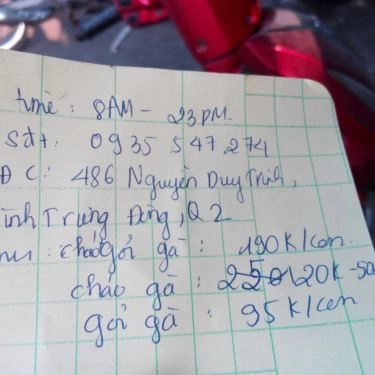 time: 8AM - 23PM.
Sđt: 0935 547.274
ĐC: 486 Nguyễn Duy Trinh,
Bình Trưng Đông, Q2
cháo gỏi gà: 190K/con.
cháo gà: 120K - 50
gỏi gà: 95K/con